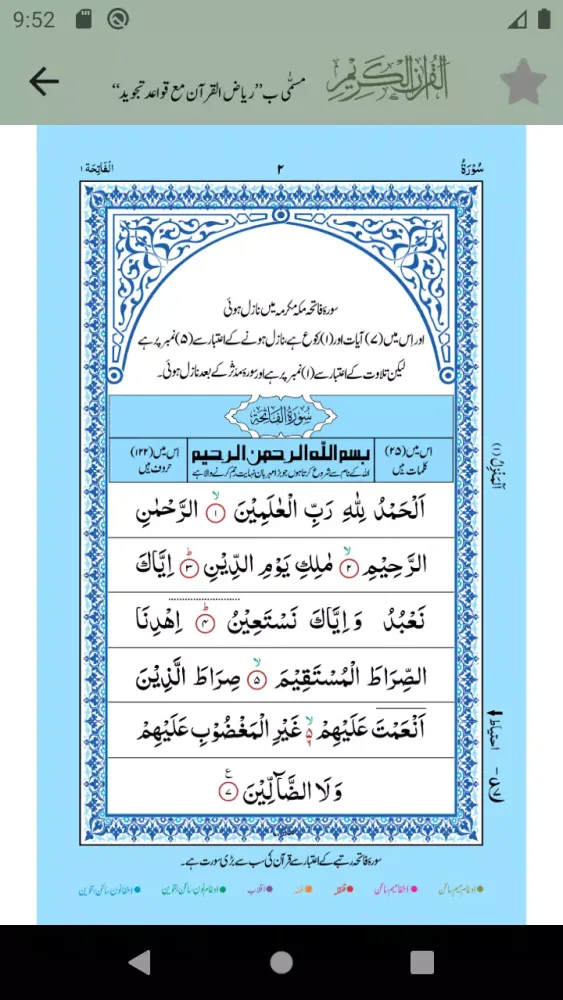 9:52
القرآن الكريم
مسمّٰی ب ”ریاض القرآن مع قواعد تجوید“
سُوْرَةُ ٢ الْفَاتِحَة ١
سورۃ فاتحہ مکہ مکرمہ میں نازل ہوئی
اور اس میں (۷) آیات اور (۱) رکوع ہے، نازل ہونے کے اعتبار سے (۵) نمبر پر ہے
لیکن تلاوت کے اعتبار سے (۱) نمبر پر ہے اور سورۃ مدثر کے بعد نازل ہوئی۔
سُوْرَةُ الْفَاتِحَة
اس میں (۲۵) کلمات ہیں
بسم الله الرحمن الرحيم
اللہ کے نام سے شروع کرتا ہوں جو بڑا مہربان نہایت رحم کرنے والا ہے
اس میں (۱۲۲) حروف ہیں
اَلْحَمْدُ لِلّٰهِ رَبِّ الْعٰلَمِيْنَ ۙ﴿۱﴾ الرَّحْمٰنِ
الرَّحِيْمِ ۙ﴿۲﴾ مٰلِكِ يَوْمِ الدِّيْنِ ؕ﴿۳﴾ اِيَّاكَ
نَعْبُدُ وَ اِيَّاكَ نَسْتَعِيْنُ ؕ﴿۴﴾ اِهْدِنَا
الصِّرَاطَ الْمُسْتَقِيْمَ ۙ﴿۵﴾ صِرَاطَ الَّذِيْنَ
اَنْعَمْتَ عَلَيْهِمْ ۙ۬ۦ غَيْرِ الْمَغْضُوْبِ عَلَيْهِمْ
وَلَا الضَّآلِّيْنَ ﴿۷﴾ ع
اَلْمَنْزِلُ (١)
احتیاط
سورۃ فاتحہ رتبے کے اعتبار سے قرآن کی سب سے بڑی سورت ہے۔
ادغام میم ساکن اخفا میم ساکن قلقلہ غنہ اقلاب ادغام نون ساکن، تنوین اخفا نون ساکن، تنوین